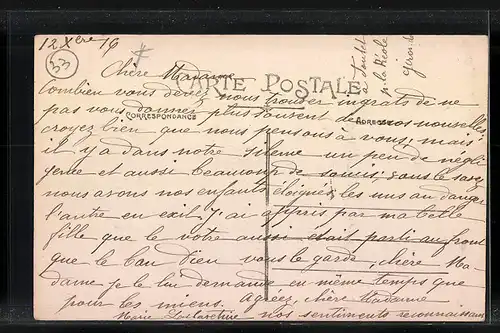 12 Xbre 16
33
à Foulet
p. la Réole
Gironde
Chère Madame
CARTE POSTALE
Combien vous devez nous trouver ingrats de ne
pas vous donner plus souvent de nos nouvelles
CORRESPONDANCE
ADRESSE
croyez bien que nous pensons à vous, mais
il y a dans notre silence un peu de negli
gence et aussi beaucoup de soucis; vous le savez
nous avons nos enfants éloignés, les uns au danger
l'autre en exil, j'ai appris par ma belle
fille que le votre aussi était parti au front
que le bon Dieu vous le garde, chère Ma-
dame je le lui demande en même temps que
pour les miens. Agréez, chère Madame
nos sentiments reconnaissants
Marie